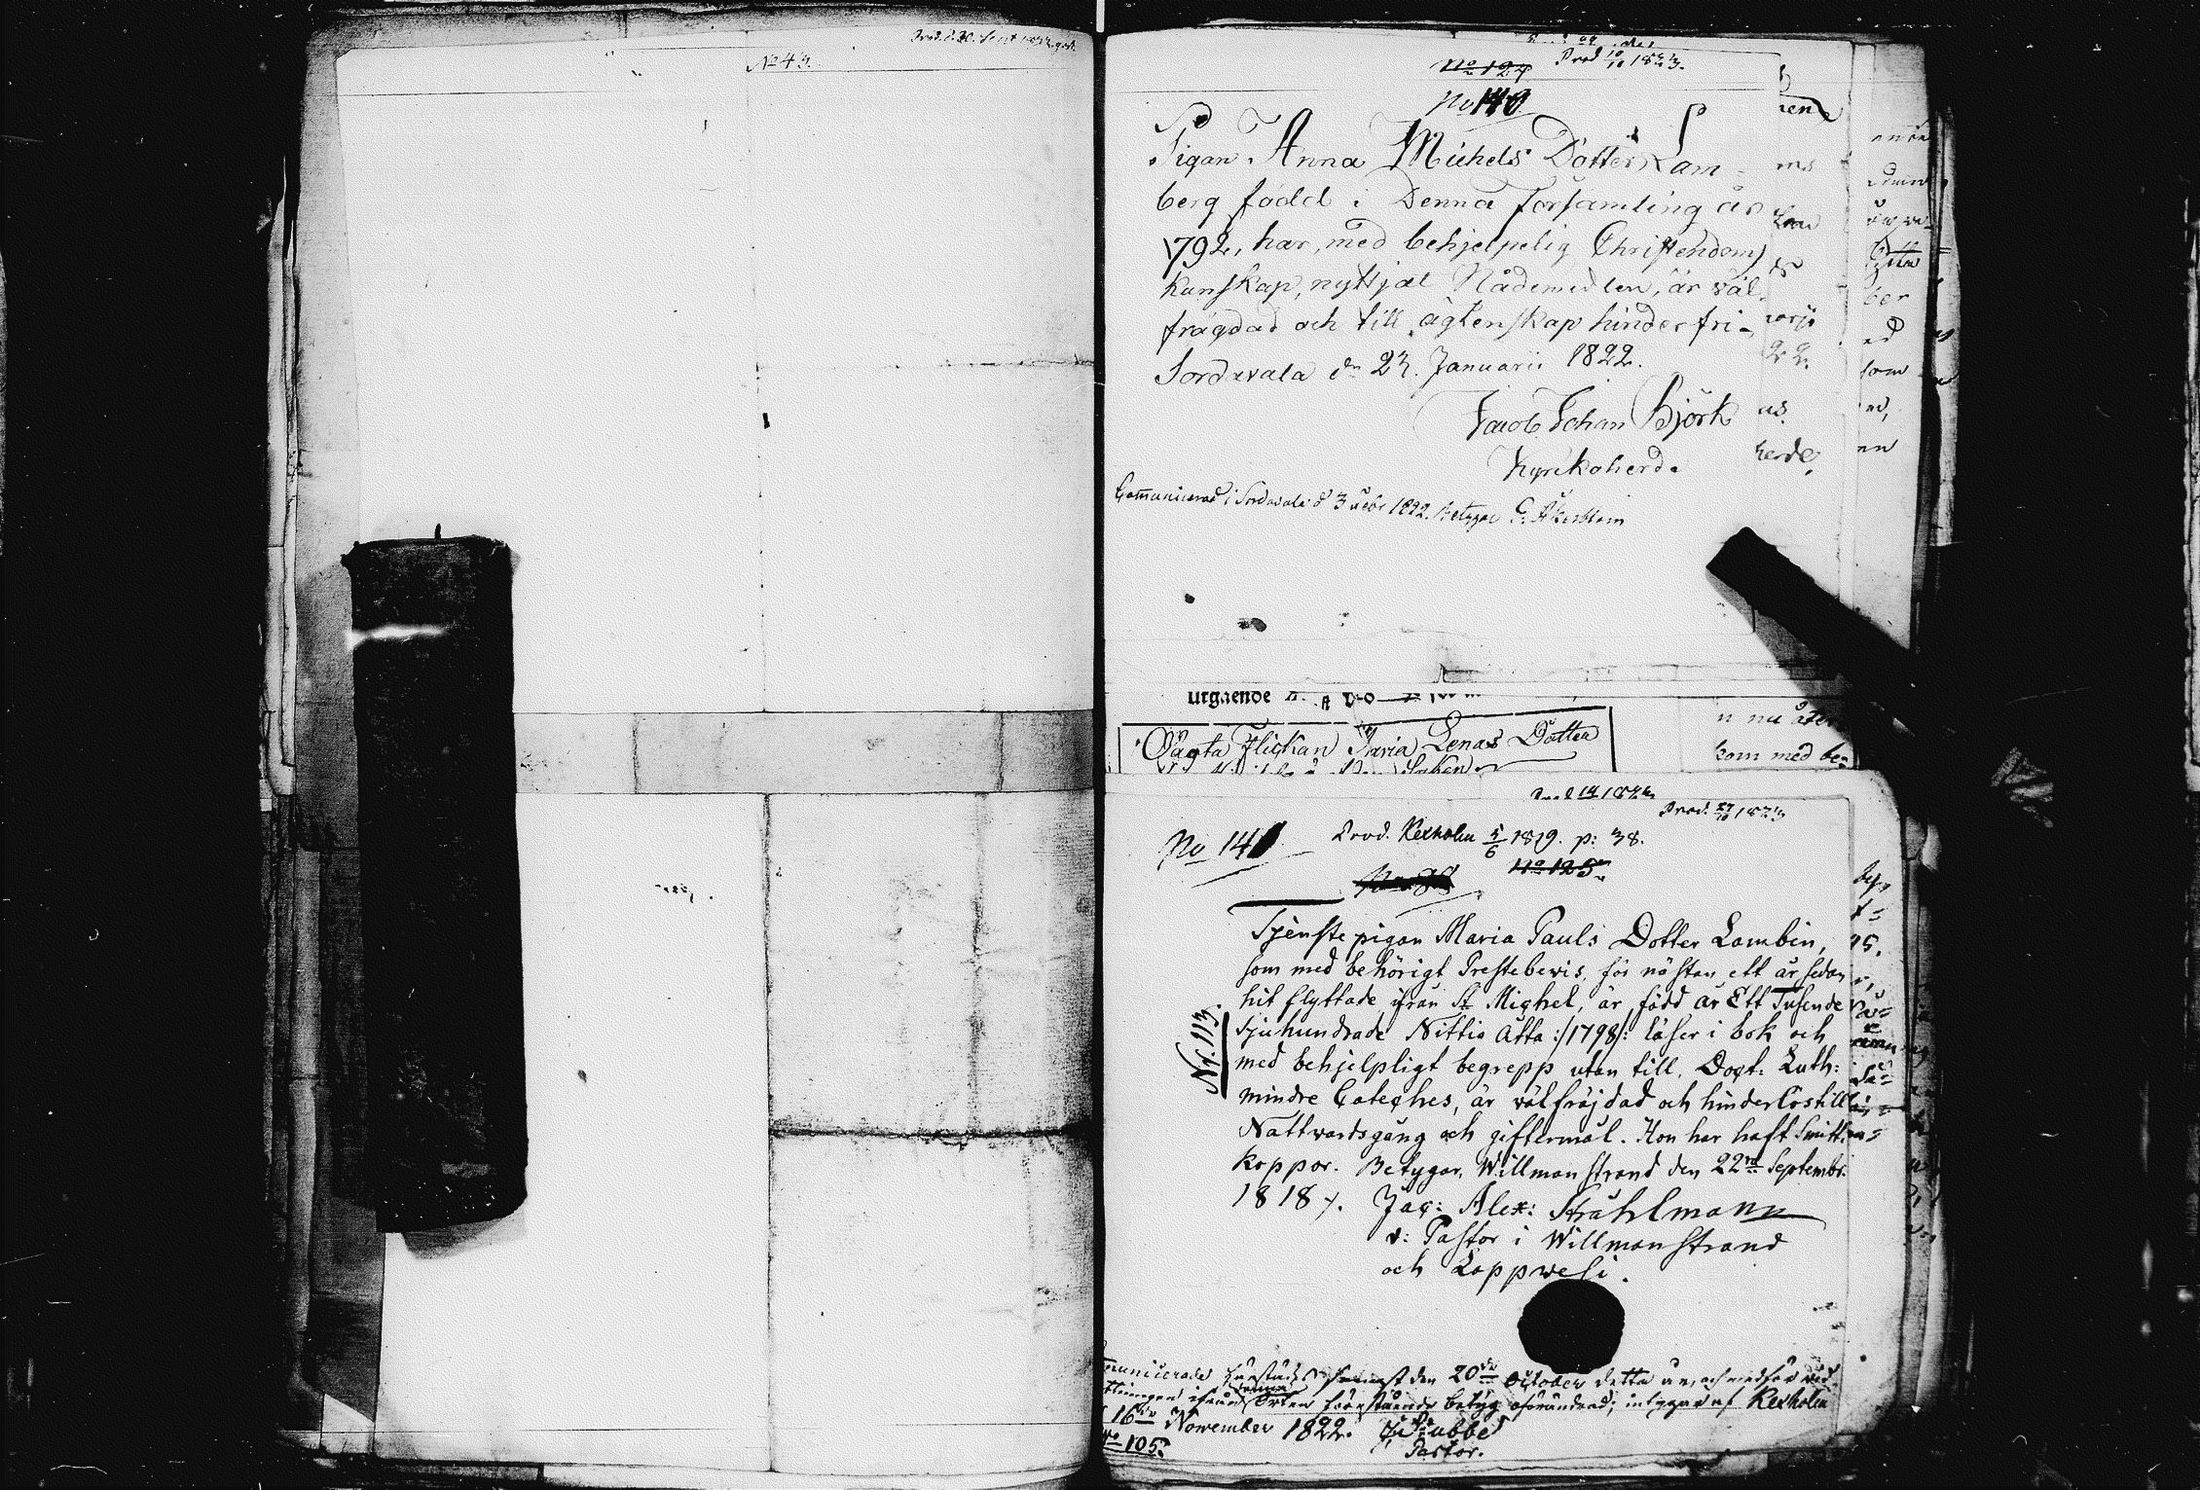 No 43.
Prod. d. 30. Sept
No 124
Prod 10/10 1823.
No 140
Pigan Anna Michels Dotter Lam-
berg född i Denna Församling år
1792, har, med behjelpelig Christendoms
kunskap, nyttjat Nådemedlen, är väl-
frägdad och till ägtenskap hinderfri-
Sordavala dn 23. Januarii 1822.
Jacob Johan Björk
Kyrkoherde
Communicerad i Sordavala d 3 1822. betygar C: Åkerblom
utgaende
Oägta Flickan Maria Lenas Dotter
n nu åter
kom med be-
Prod. 27/10 1823
No 141
Prod. Kexholm 5/6 1819. p: 38.
No 125.
Tjenstepigan Maria Pauls Dotter Lambin,
som med behörigt Prestebewis, för nästan ett år sedan
hit flyttade ifrån St Michel, är född år Ett Tusende
Sjuhundrade Nittio Åtta :/1798/: läser i bok och
med behjelpligt begrepp utan till, Doct: Luth:
mindre Cateches, är välfräjdad och hinderlös till
Nattwardsgång och giftermål. Hon har haft Smitt-
koppor. Betygar, Willmanstrand den 22nd Septembr.
1818.
Nr. 113.
Jac: Alex: Stråhlmann
v: Pastor i Willmanstrand
och Lappwesi.
Communicerade härstädes senast den 20de October detta år, och medför wid
flyttningen ifrån denna Orten förestående betyg oförändrad; intygar af Kexholm
d 16de November 1822. Tubbe
No 105.
Pastor.